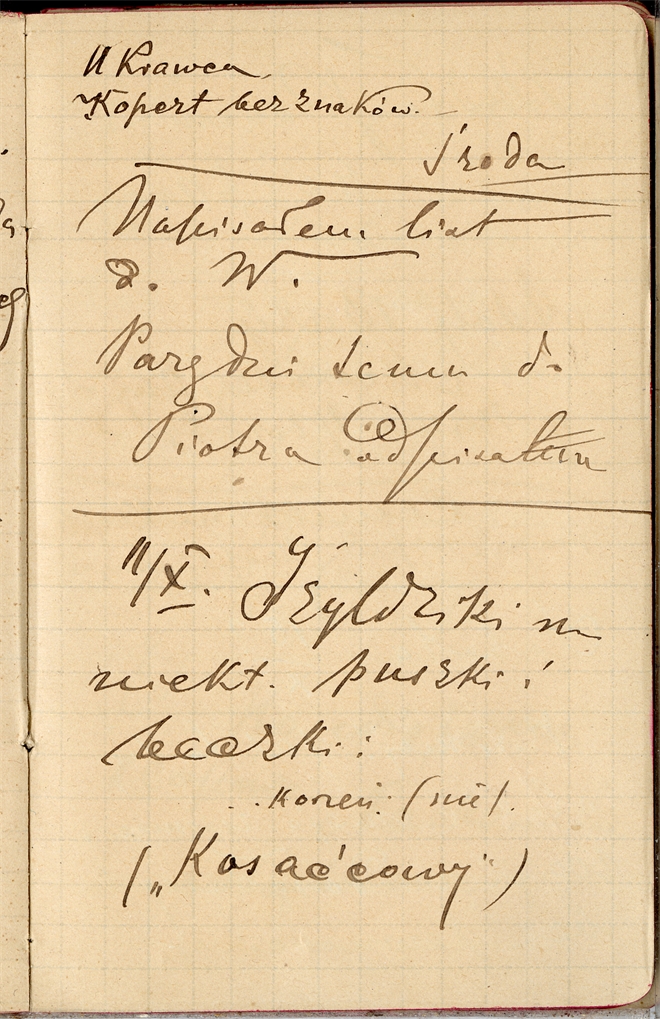 U Krawca
Kopert bez znaków.
Środa
Napisałem list
d. W.
Pargdni temu do
Piotra Odpisałem
11/X. Szyldziki na
niekt. puszki i
beczki:
Korzeń. (nie).
(„Kosaćcowy”)